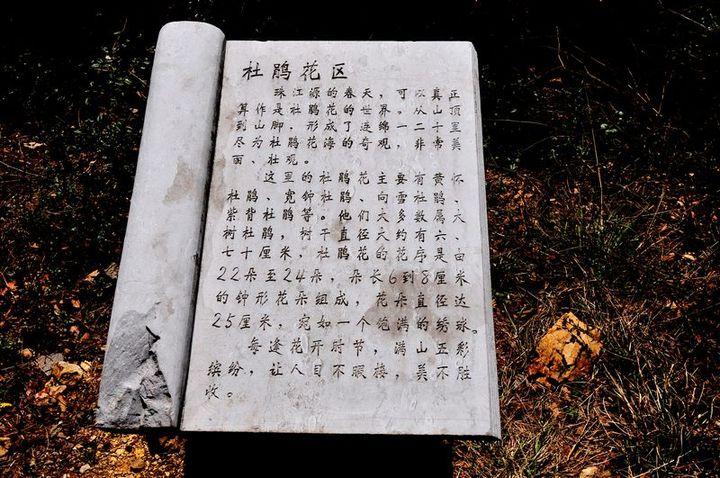 杜鹃花区
珠江源的春天，可以真正
算作是杜鹃花的世界。从山顶
到山脚，形成了连绵一二十里
尽为杜鹃花海的奇观，非常美
丽、壮观。
这里的杜鹃花主要有黄怀
杜鹃、宽钟杜鹃、向雪杜鹃、
紫背杜鹃等。他们大多数属大
树杜鹃，树干直径大约有六、
七十厘米，杜鹃花的花序是由
22朵至24朵，朵长6到8厘米
的钟形花朵组成，花朵直径达
25厘米，宛如一个饱满的绣球。
每逢花开时节，满山五彩
缤纷，让人目不暇接，美不胜
收。